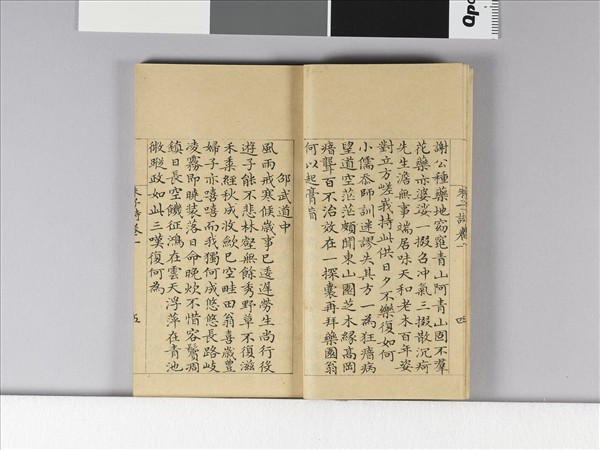 謝公種藥地窈窕青山阿青山固不羣
花藥亦婆娑一掇召冲氣三掇散沉痾
先生澹無事端居味天和老木百年姿
對立方嵯峨持此供日夕不樂復如何
小儒忝師訓迷謬失其方一為狂瘖病
望道空茫茫頗聞東山園芝朮緣高岡
瘖聾百不治放在一探囊再拜藥園翁
何以起膏肓
邵武道中
風雨戒寒候歲事已逶遲勞生尚行役
遊子能不悲林壑無餘秀野草不復滋
禾黍經秋成收歛已空畦田翁喜歲豐
婦子亦嘻嘻而我獨何成悠悠長路岐
凌霧即曉装落日命晚炊不惜容鬢凋
鎮日長空饑征鴻在雲天浮萍在青池
微蹤政如此三嘆復何為
朱子詩卷一
四
朱子詩卷一
五